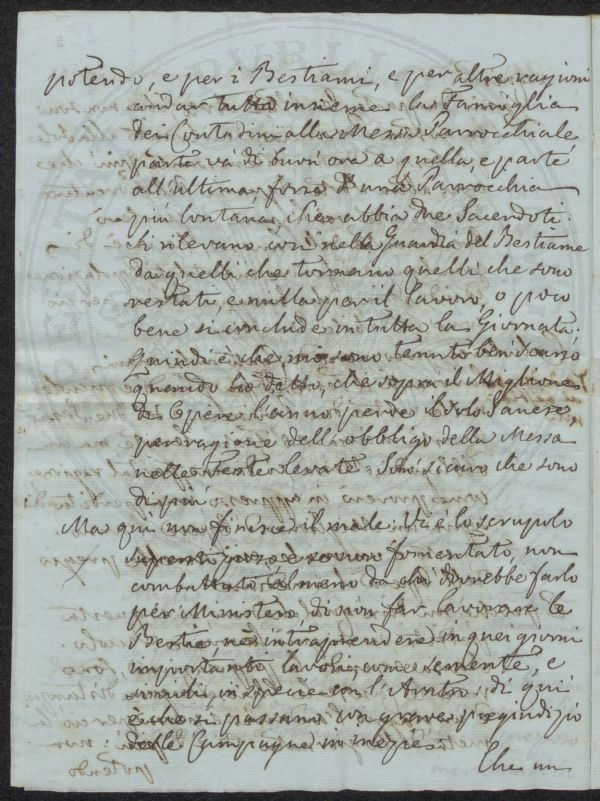 potendo, e per i Bestiami, e per altre ragioni
andar tutta insieme la Famiglia
dei Contadini alla Messa Parrocchiale
parte và di buon ora a quella, e parte
all'ultima, forse d'una Parrocchia
più lontana, che abbia due Sacerdoti.
Si rilevano così nella Guardia del Bestiame
da quelli che tornano quelli che sono
restati, e nulla per il lavoro, o poco
bene si conclude in tutta la Giornata.
Quindi è che mi sono tenuto ben scarso
quando ho detto, che sopra il Miglione
di Opere l'anno perde il solo Sanese,
per ragione dell'obbligo della Messa
nelle Feste levate. Son sicuro che sono
di più.
Ma qui non finisce il male. Vi è lo scrupolo
fomentato, non
combattuto almeno da chi dovrebbe farlo
per Ministero, di non far lavorare le
Bestie, nè intraprendere in quei giorni
importanti lavori, come semente, e
simili, in specie con l'Aratro. di qui
è che si passano con grave pregiudizio
delle Campagne in
Che un